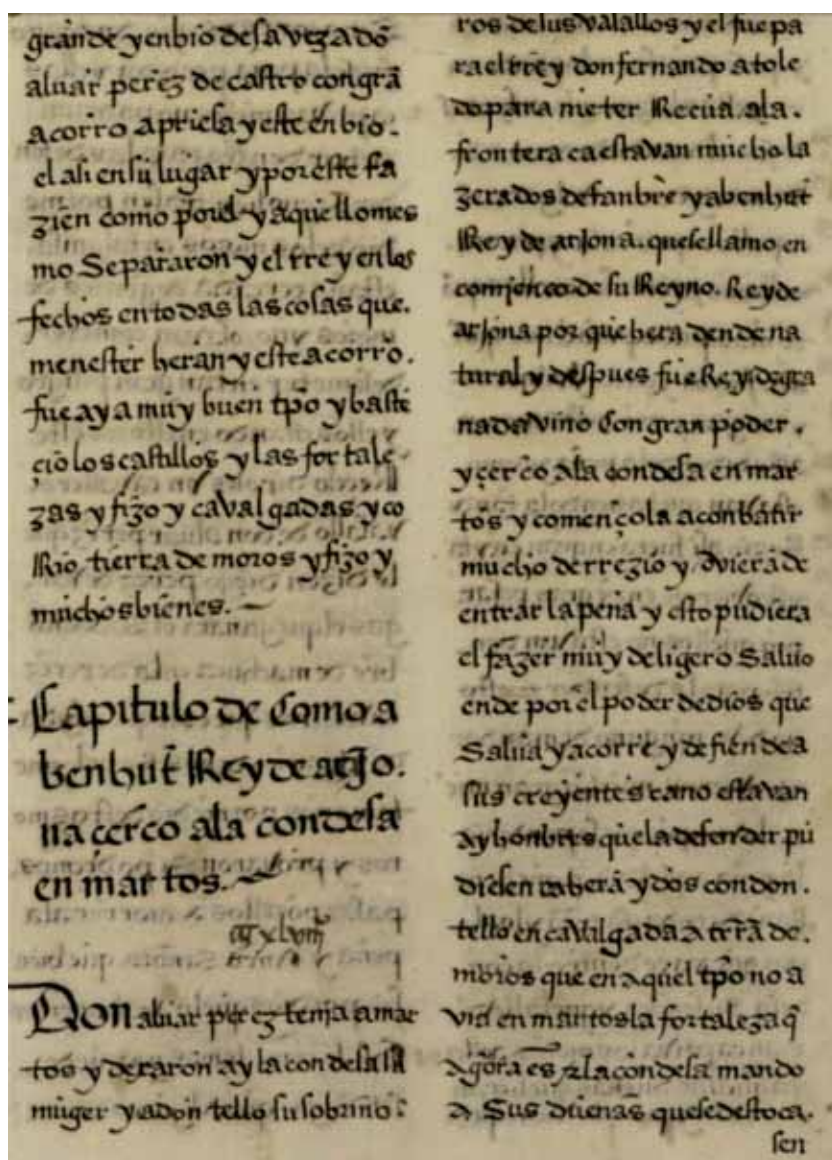 grande y enbio desa vez a dõ
aluar perez de castro con grã
acorro apriesa y este enbio.
el asi en su lugar y por este fa
zien como por el y aquello mes
mo Se pararon y el rrey en los
fechos en todas las cosas que.
menester heran y este acorro.
fue ay a muy buen tp̃o y baste
çio los castillos y las fortale
zas y fizo y cavalgadas y co
Rio tierra de moros y fizo y
muchos bienes.
Capitulo de Como a
benhut̃ Rey de arjo.
na cerco ala condesa
en martos.
xlviii
Don aluar perez tenja a mar
tos y dexaron ay la condesa su
muger y a don tello su sobrino
ros de sus vasallos y el fue pa
ra el rrey don fernando a tole
do para meter Recua ala.
frontera ca estavan mucho la
zerados de fanbre y abenhut̃
Rey de arjona. que se llamo en
comjenco de su Reyno. Rey de
arjona por que hera dende na
tural y despues fue Rey de gra
nada vino Con gran poder.
y çerco ala condesa en mar
tos y començola a conbatir
mucho de rrezio y oviera de
entrar la peña y esto pudiera
el fazer muy de ligero Saluo
ende por el poder de dios que
Salua y acorre y defiende a
sus creyentes ca no estavan
ay honbres que la defender pu
diesen ca herã ydos con don.
tello en cavalgada a trr̃a de.
moros que en aquel tp̃o no a
via en martos la fortaleza q̃
agora es la condesa mando
a Sus dueñas que se destoca.
sen